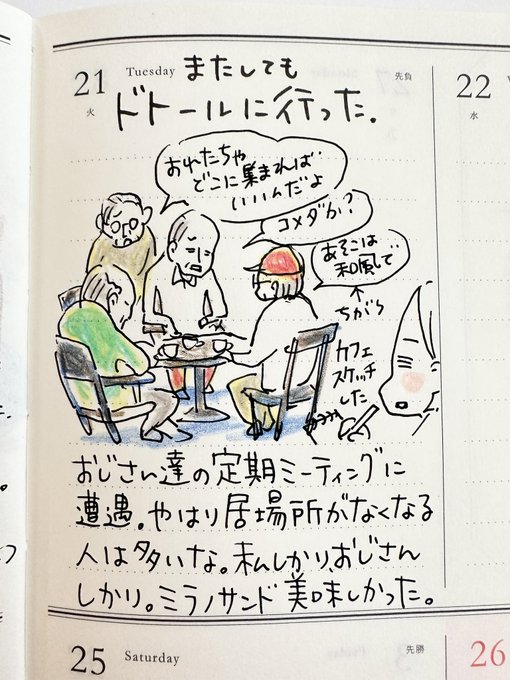 21 Tuesday またしても
火
先負
ドトールに行った.
22
水
おれたちゃ
どこに集まれば
いいんだよ
コメダか?
あそこは
和風で
↑
ちがう
カフェ
スケッチ
した
おじさん達の定期ミーティングに
遭遇。やはり居場所がなくなる
人は多いな。私しかり、おじさん
しかり。ミラノサンド美味しかった。
25 Saturday
先勝
26